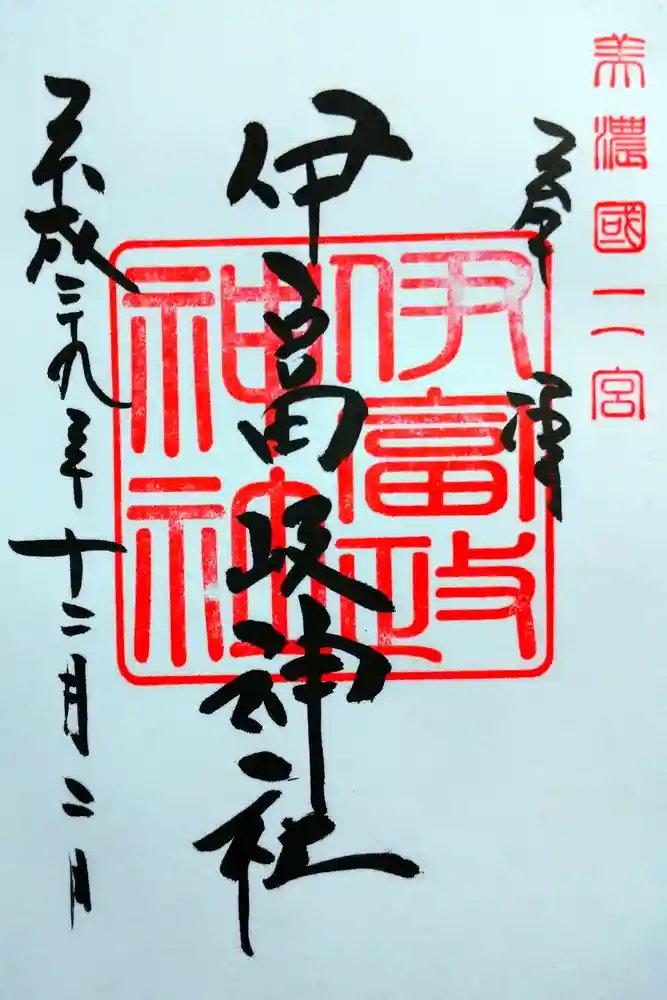 美濃國二宮
奉拝
伊富岐神社
平成二十九年十二月二日